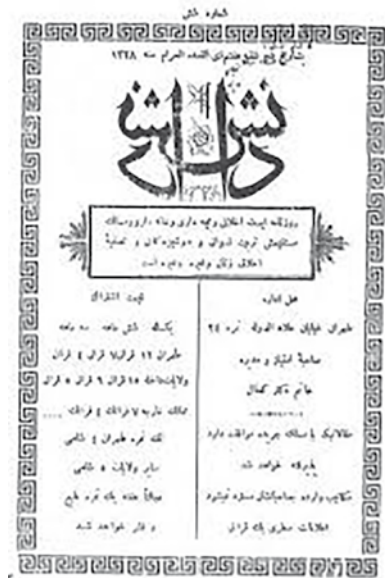 شماره شش
بتاریخ پنج شنبه هفتم ذی القعده الحرام سنه ۱۳۲۸
دانش
روزنامه ایست اخلاقی و بچه داری و خانه داری و مسلک
مستقیمش تربیت نسوان و دوشیزه‌گان و تصفیهٔ
اخلاق زنان و غیره و غیره است
محل اداره
طهران خیابان علاء الدوله نمره ۲۴
صاحبهٔ امتیاز و مدیره
خانم دکتر کحال
مقالاتیکه با مسلک جریده موافقت دارد
پذیرفته خواهد شد
مکاتیب وارده بصاحبانش مسترد نمیشود
اعلانات سطری یک قرانی
قیمت اشتراک
یکساله شش ماهه سه ماهه
طهران ۱۲ قران ۷ قران ۴ قران
ولایات داخله ۱۵ قران ۹ قران ۵ قران
ممالک خارجه ۷ فرانک ۴ فرانک
تک نمره طهران ۴ شاهی
سایر ولایات ۵ شاهی
عجالتاً هفته یک نمره طبع
و نشر خواهد شد